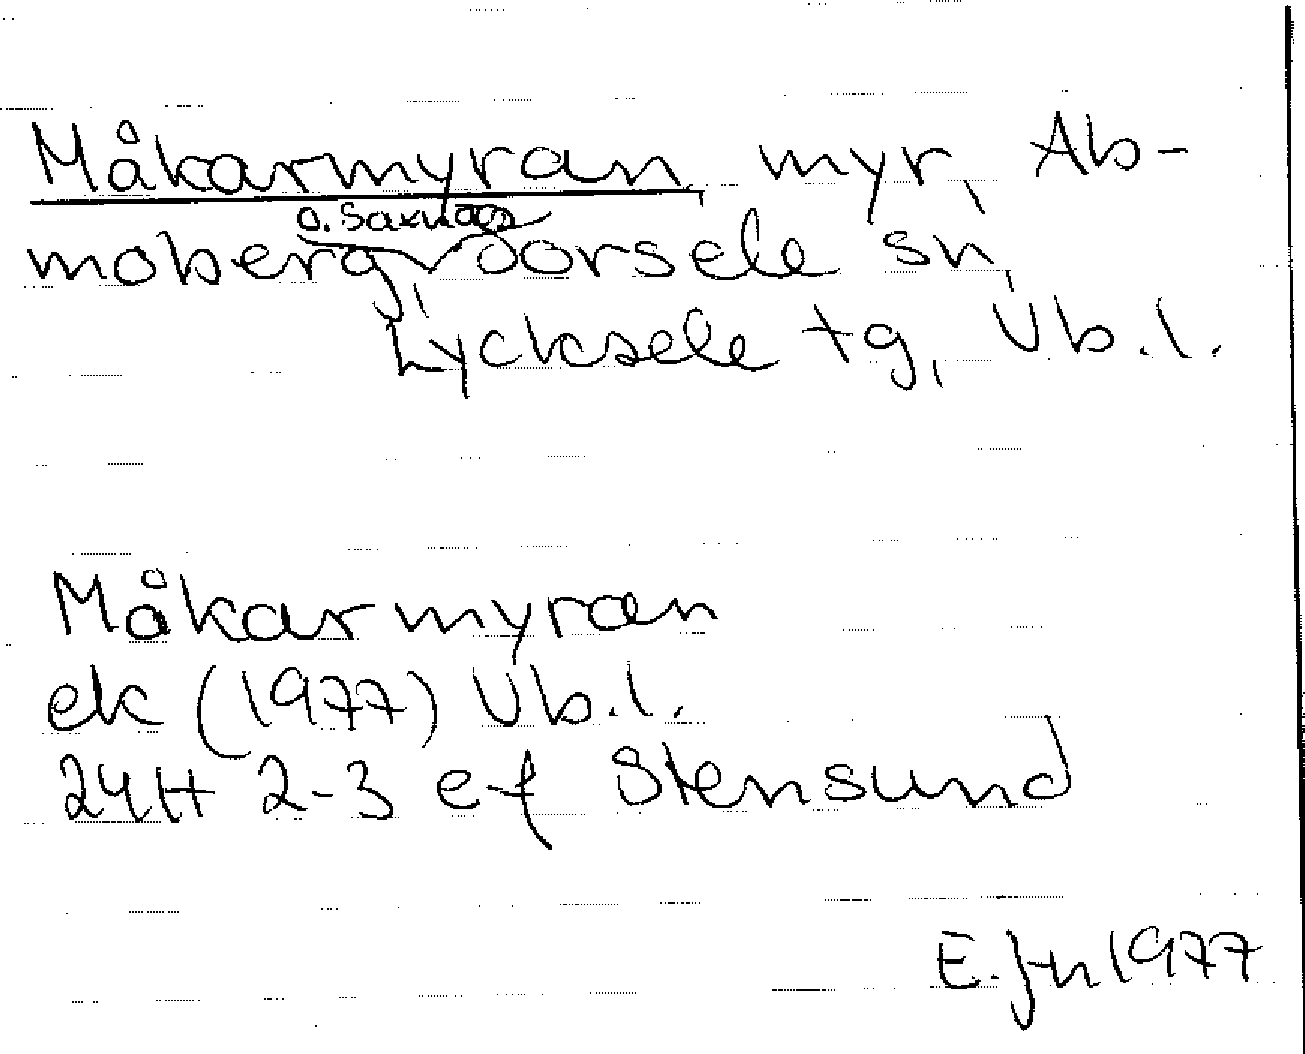 Måkarmyran myr, Ab-
o. Saxnäs
moberg, Sorsele sn,
Lycksele tg, Vb.l.
Måkarmyran
ek (1977) Vb.l.
24H 2-3 e-f Stensund
E. Jn 1977